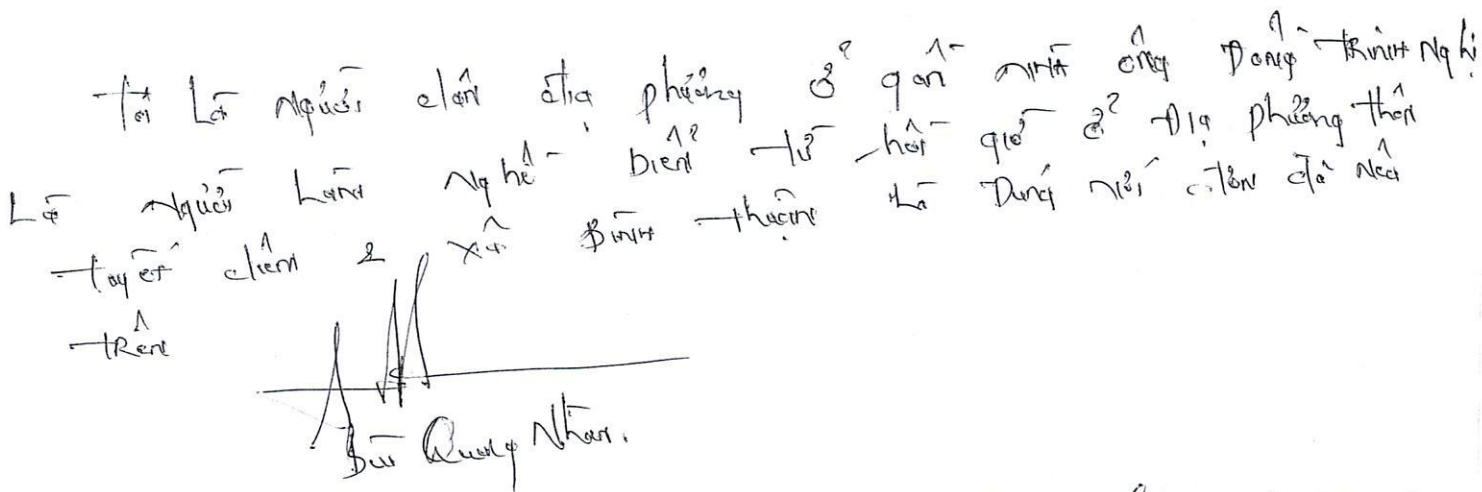 Tôi Là người dân địa phương ở gần nhà ông Đồng Trinh Nghị
Là người Làm Nghề biển từ hồi giờ ở Địa phương thôn
tuyết diêm 2 xã Bình thuận Là Đúng như đơn đã Nêu
trên
Bùi Quang Nhân.